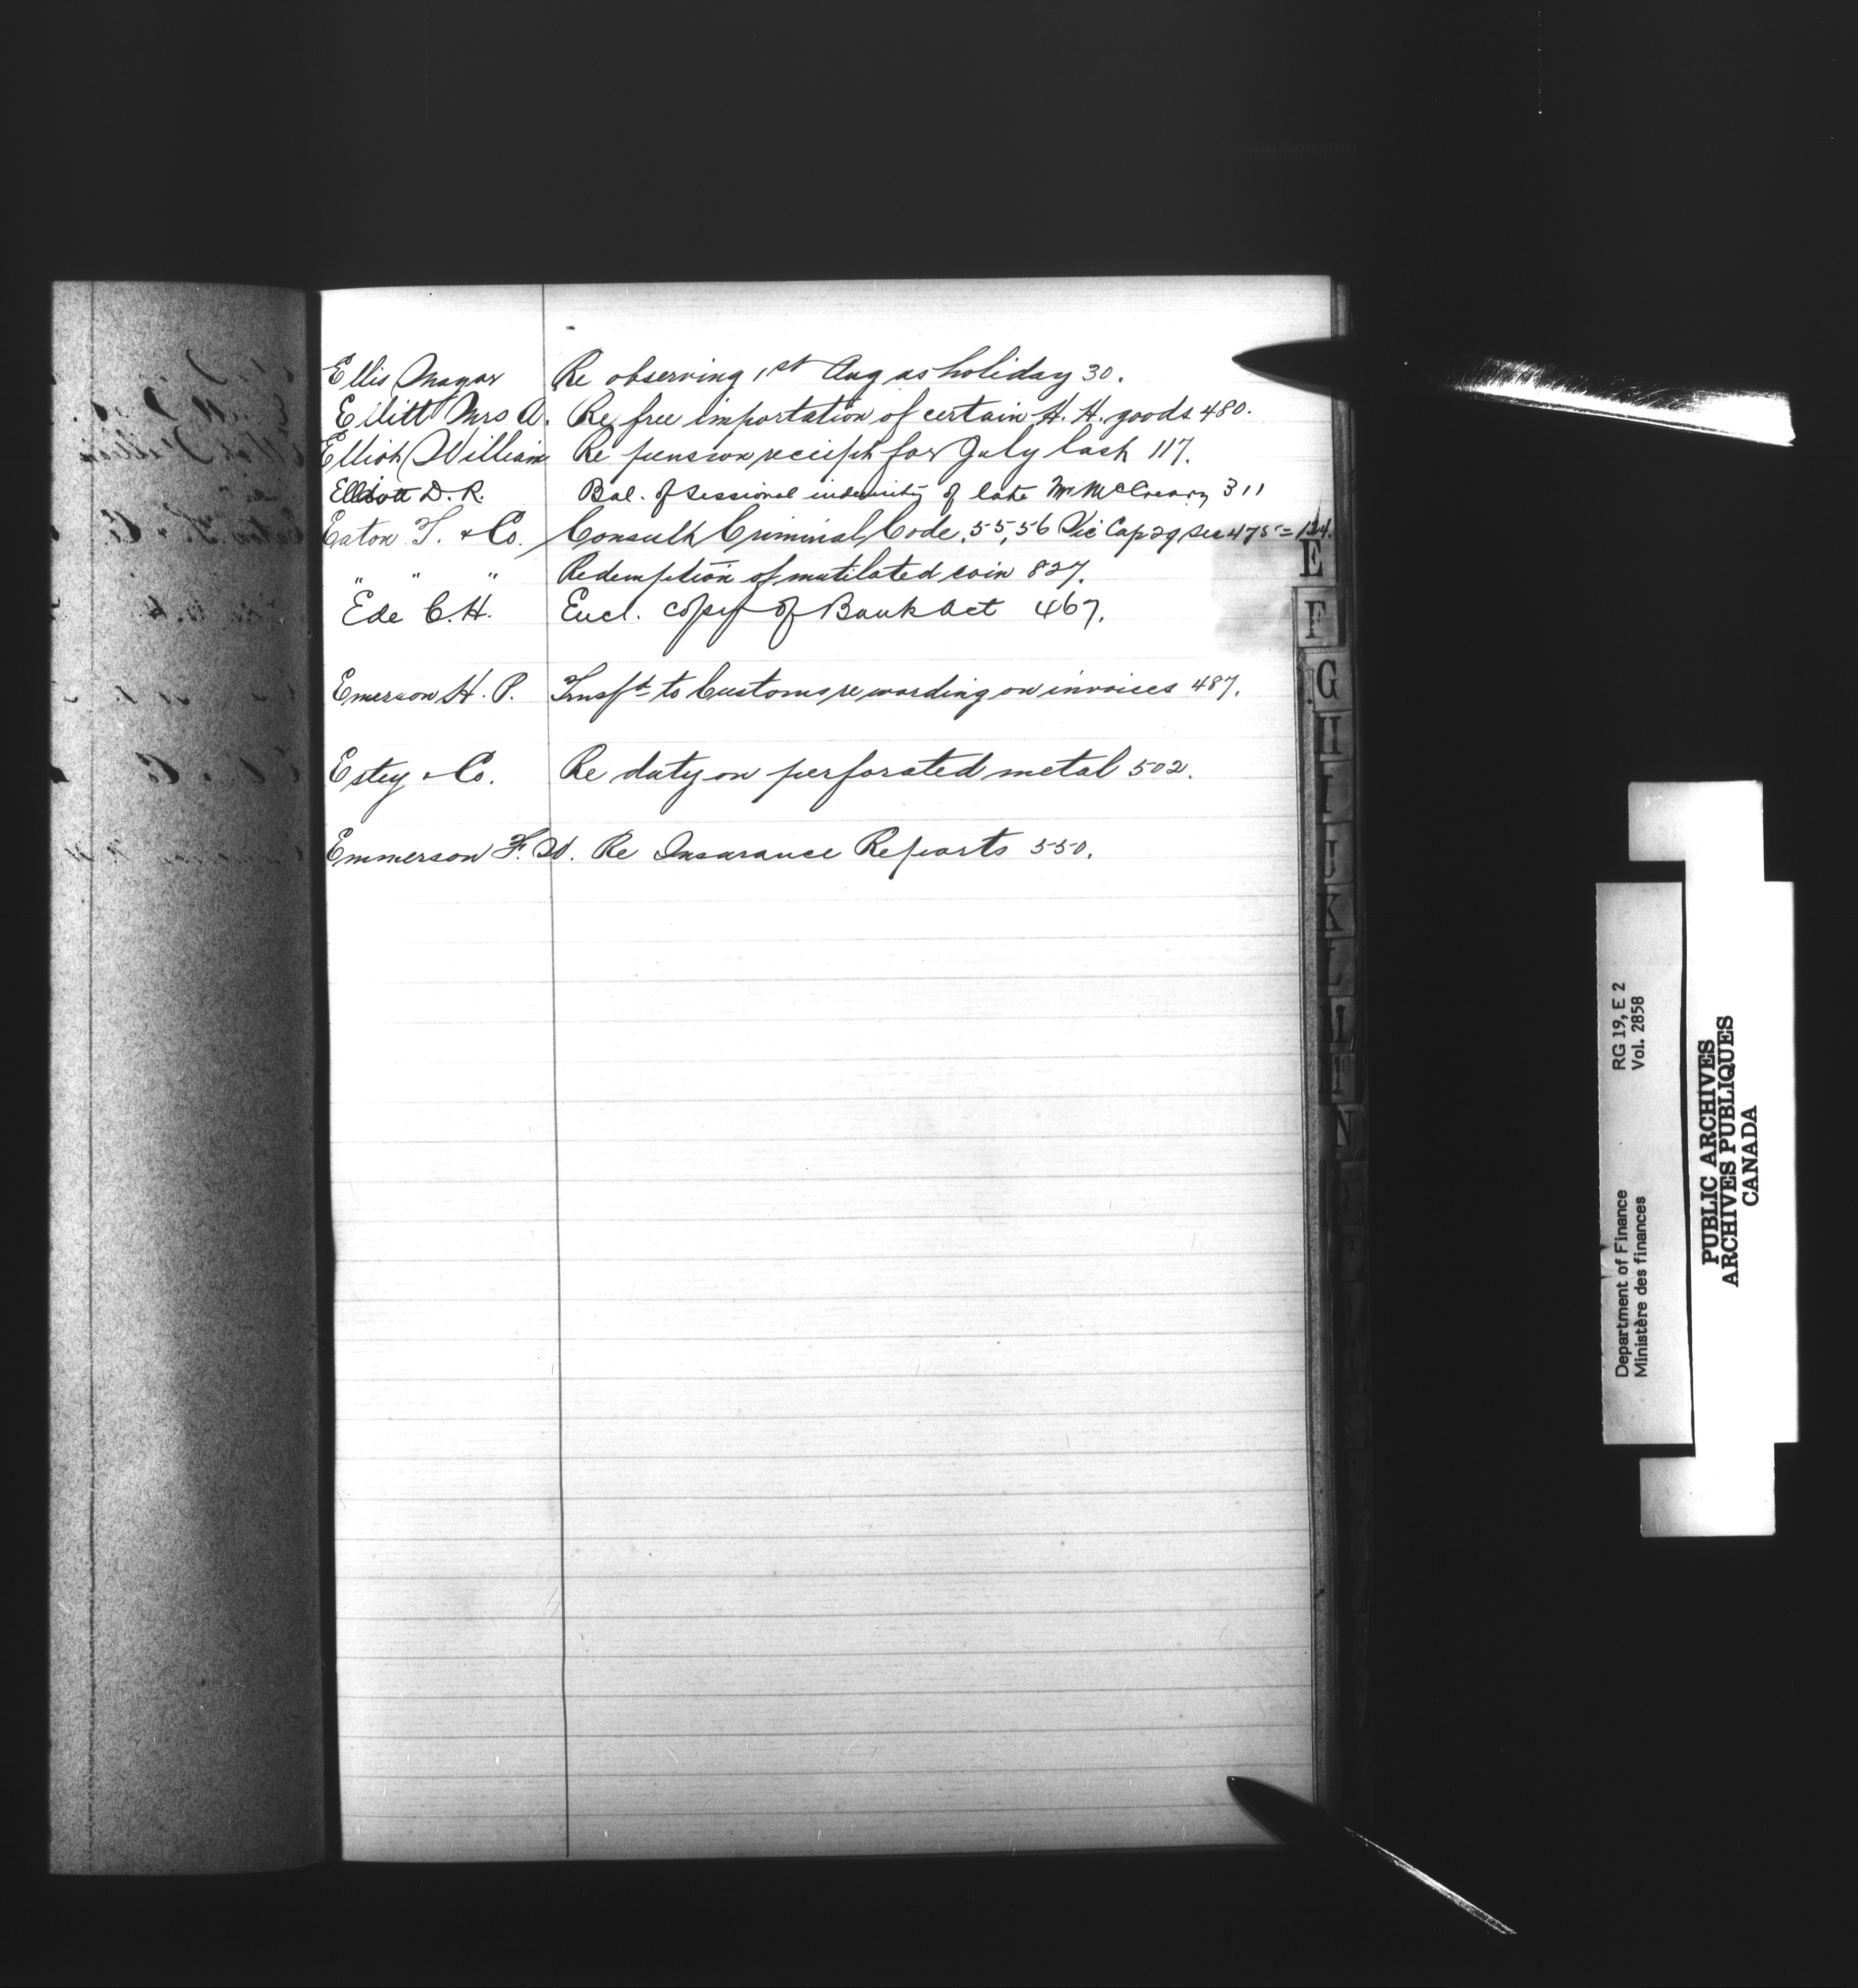 Ellis Mayor Re observing 1st Aug as holiday 30.
Ellitt Mrs A. Re free importation of certain H. H. goods 480.
Elliot William Re pension receipt for July last 117.
Elliott D. R. Bal. of Sessional indemnity of late Mr McCreary 311
Eaton T. & Co. Consult Criminal Code, 55,56 Vic Cap 29 Sec 475 = 124.
" " " Redemption of mutilated coin 827.
Ede C. H. Encl. copy of Bank Act 467.
Emerson H. P. Trnsfd to Customs re wording on invoices 487.
Estey & Co. Re duty on perforated metal 502.
Emmerson F. W. Re Insurance Reports 550.
E
F
G
H
I
J
K
L
N
Department of Finance RG 19, E 2
Ministère des finances Vol. 2858
PUBLIC ARCHIVES
ARCHIVES PUBLIQUES
CANADA